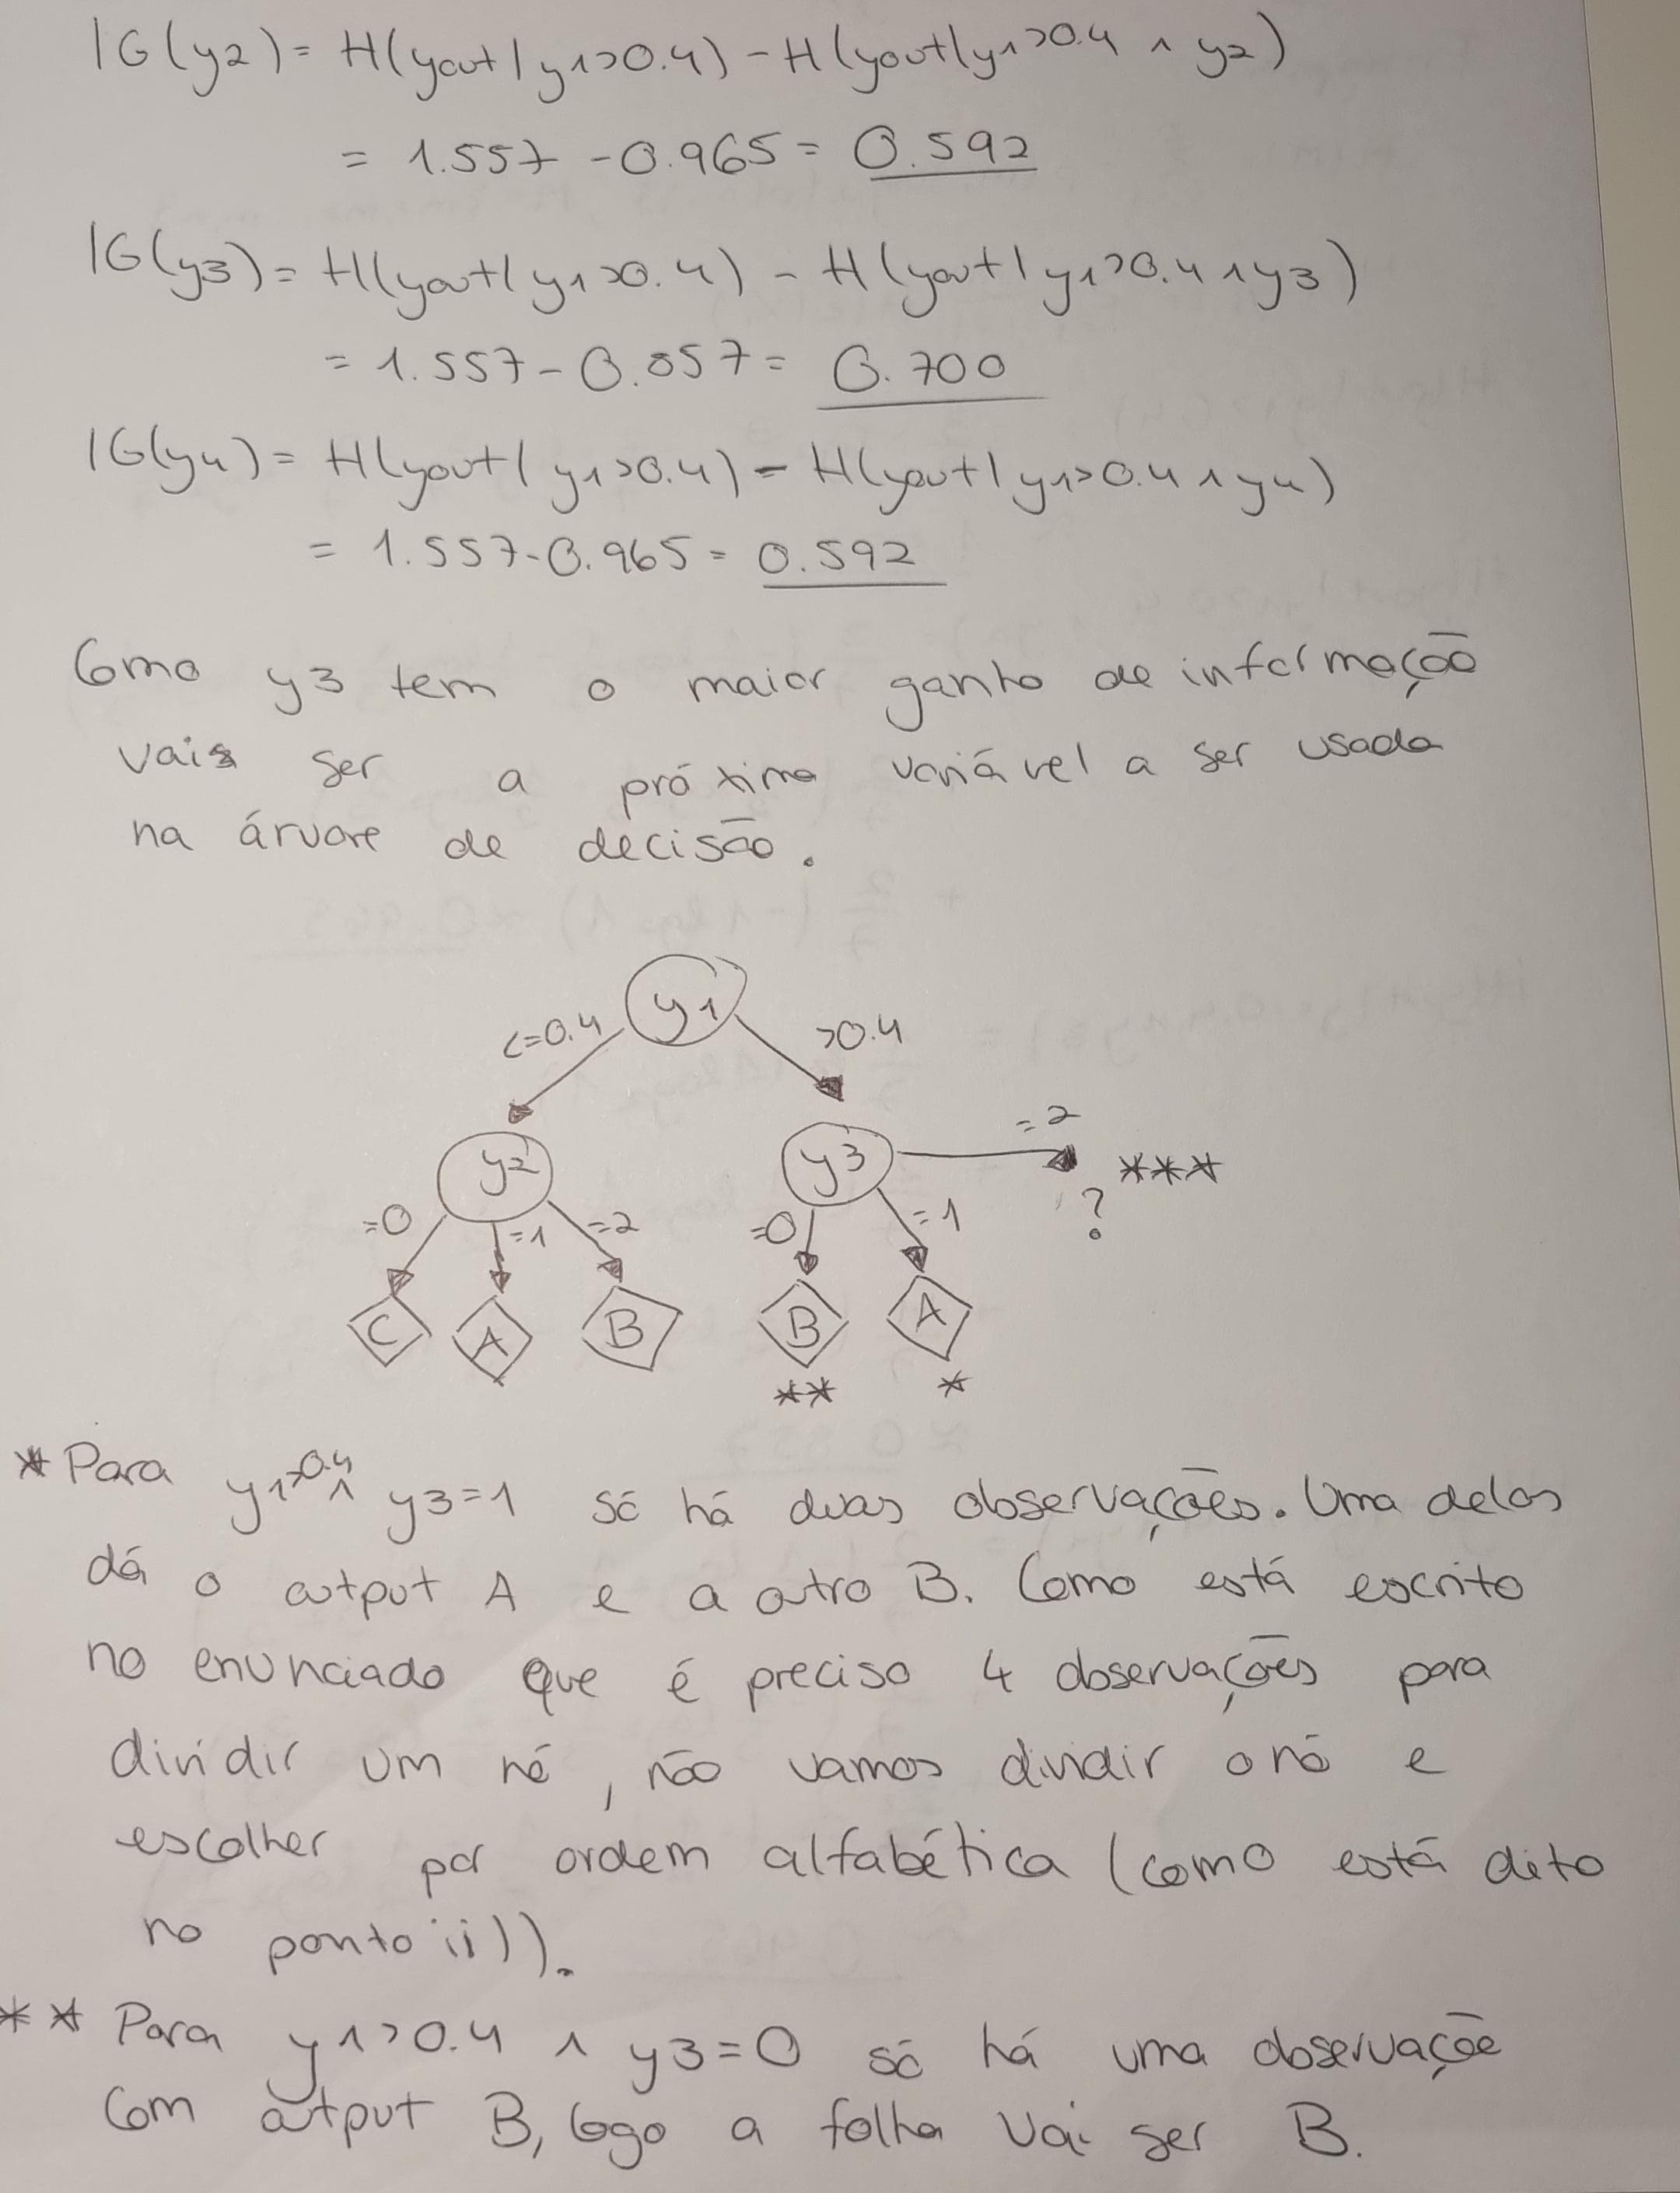 IG(y2) = H(yout|y1>0.4) - H(yout|y1>0.4 ∧ y2)
= 1.557 - 0.965 = 0.592
IG(y3) = H(yout|y1>0.4) - H(yout|y1>0.4 ∧ y3)
= 1.557 - 0.857 = 0.700
IG(y4) = H(yout|y1>0.4) - H(yout|y1>0.4 ∧ y4)
= 1.557 - 0.965 = 0.592
Como y3 tem o maior ganho de informação
vais ser a próxima variável a ser usada
na árvore de decisão.
y1
<=0.4 >0.4
y2 y3 =2 ***
?
=0 =1 =2 =0 =1
C A B B A
** *
* Para y1>0.4 ∧ y3=1 só há duas observações. Uma delas
dá o output A e a outro B. Como está escrito
no enunciado que é preciso 4 observações para
dividir um nó, não vamos dividir o nó e
escolher por ordem alfabética (como está dito
no ponto ii)).
** Para y1>0.4 ∧ y3=0 só há uma observação
com output B, logo a folha vai ser B.